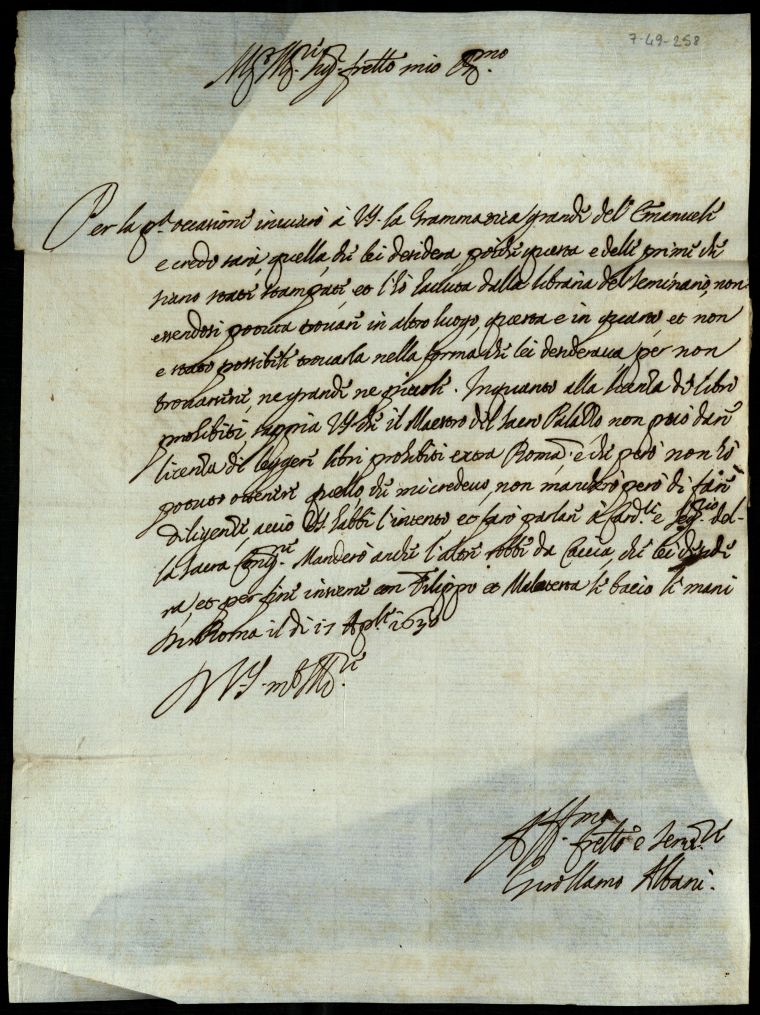 7-49-258
Mto Illre Sigr fratello mio Ossmo
Per la pnte occasione inviarò à VS. la Grammatica grande del Emanuele
e credo sarà quella, che lei desidera poiche questa e delli primi che
siano stati stampati, et l'hò havuta dalla libraria del Seminario, non
essendosi potuta trovare in altro luogo, questa e in quarto, et non
e stato possibile trovarla nella forma che lei desiderava per non
trovarsene, ne grande ne piccole. Inquanto alla licenza de libri
prohibiti, sappia VS. che il Maestro del Sacro Palazzo non può dare
licenza di leggere libri prohibiti extra Romā, e che però non hò
potuto ottenere quello, che mi credevo, non mancherò però di fare
diligenze, acciò VS. habbi l'intento et farò parlare à e Segrio del-
la sacra Congne. Manderò anche l'altre robbe da Caccia, che lei deside
ra, et per fine insieme con Filippo et Malatesta le bacio le mani
Di Roma il di 17 Aple 1630
Di VS. mto Illre
Affmo
fratello e Servre
Girollamo Albani.